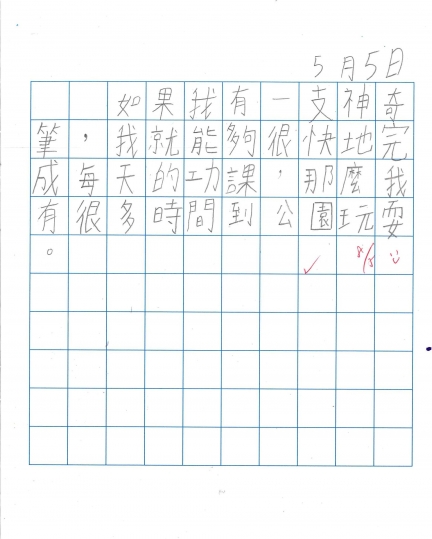 5月5日
如果我有一支神奇
筆，我就能夠很快地完
成每天的功課，那麼我
有很多時間到公園玩耍
。
8/5